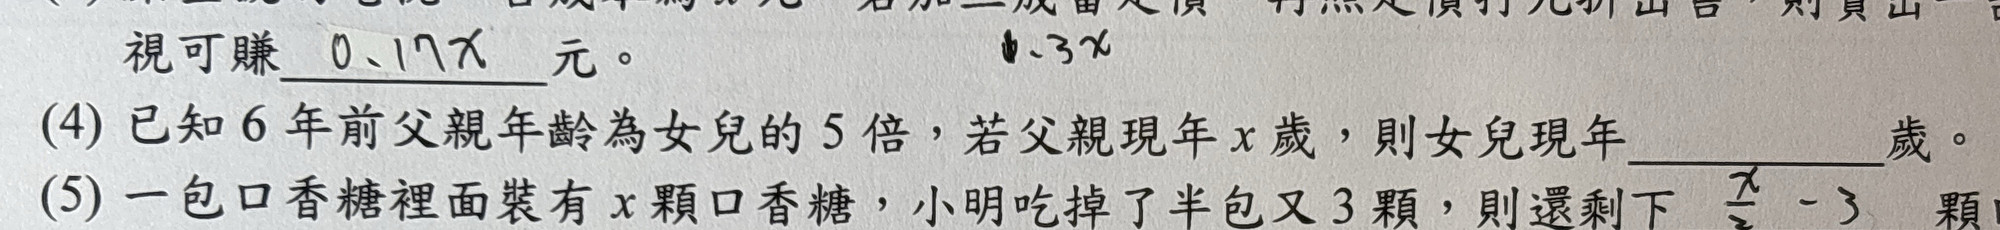 視可賺 0.17x 元。 1.3x
(4) 已知 6 年前父親年齡為女兒的 5 倍，若父親現年 x 歲，則女兒現年＿＿＿＿歲。
(5) 一包口香糖裡面裝有 x 顆口香糖，小明吃掉了半包又 3 顆，則還剩下 x/2 - 3 顆